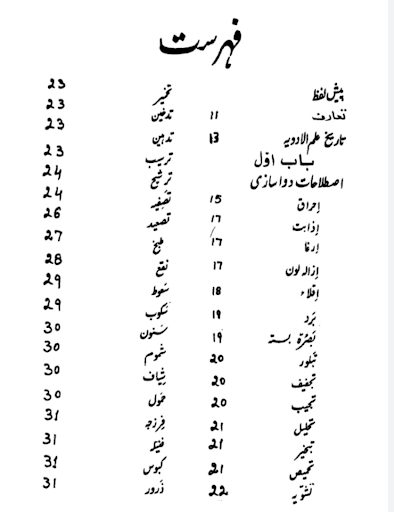 فہرست
پیش لفظ
تعارف 11
تاریخ علم الادویہ 13
باب اوّل
اصطلاحات دواسازی
اِحراق 15
اِذابت 17
اِرغا 17
اِزالہ لون 17
اِقلاء 18
بَرد 19
بستہ 19
تبلور 20
تجفیف 20
تحبیب 20
تحلیل 21
تبخیر 21
تحمیص 21
تشویہ 22
تخمیر 23
تدفین 23
تدہین 23
23
ترشیح 24
تصفیہ 24
تصعید 26
طبخ 27
نقع 28
سعوط 29
سکوب 29
سنون 30
شموم 30
شیاف 30
حمول 30
فرزجہ 31
فتیلہ 31
کبوس 31
ذرور 31